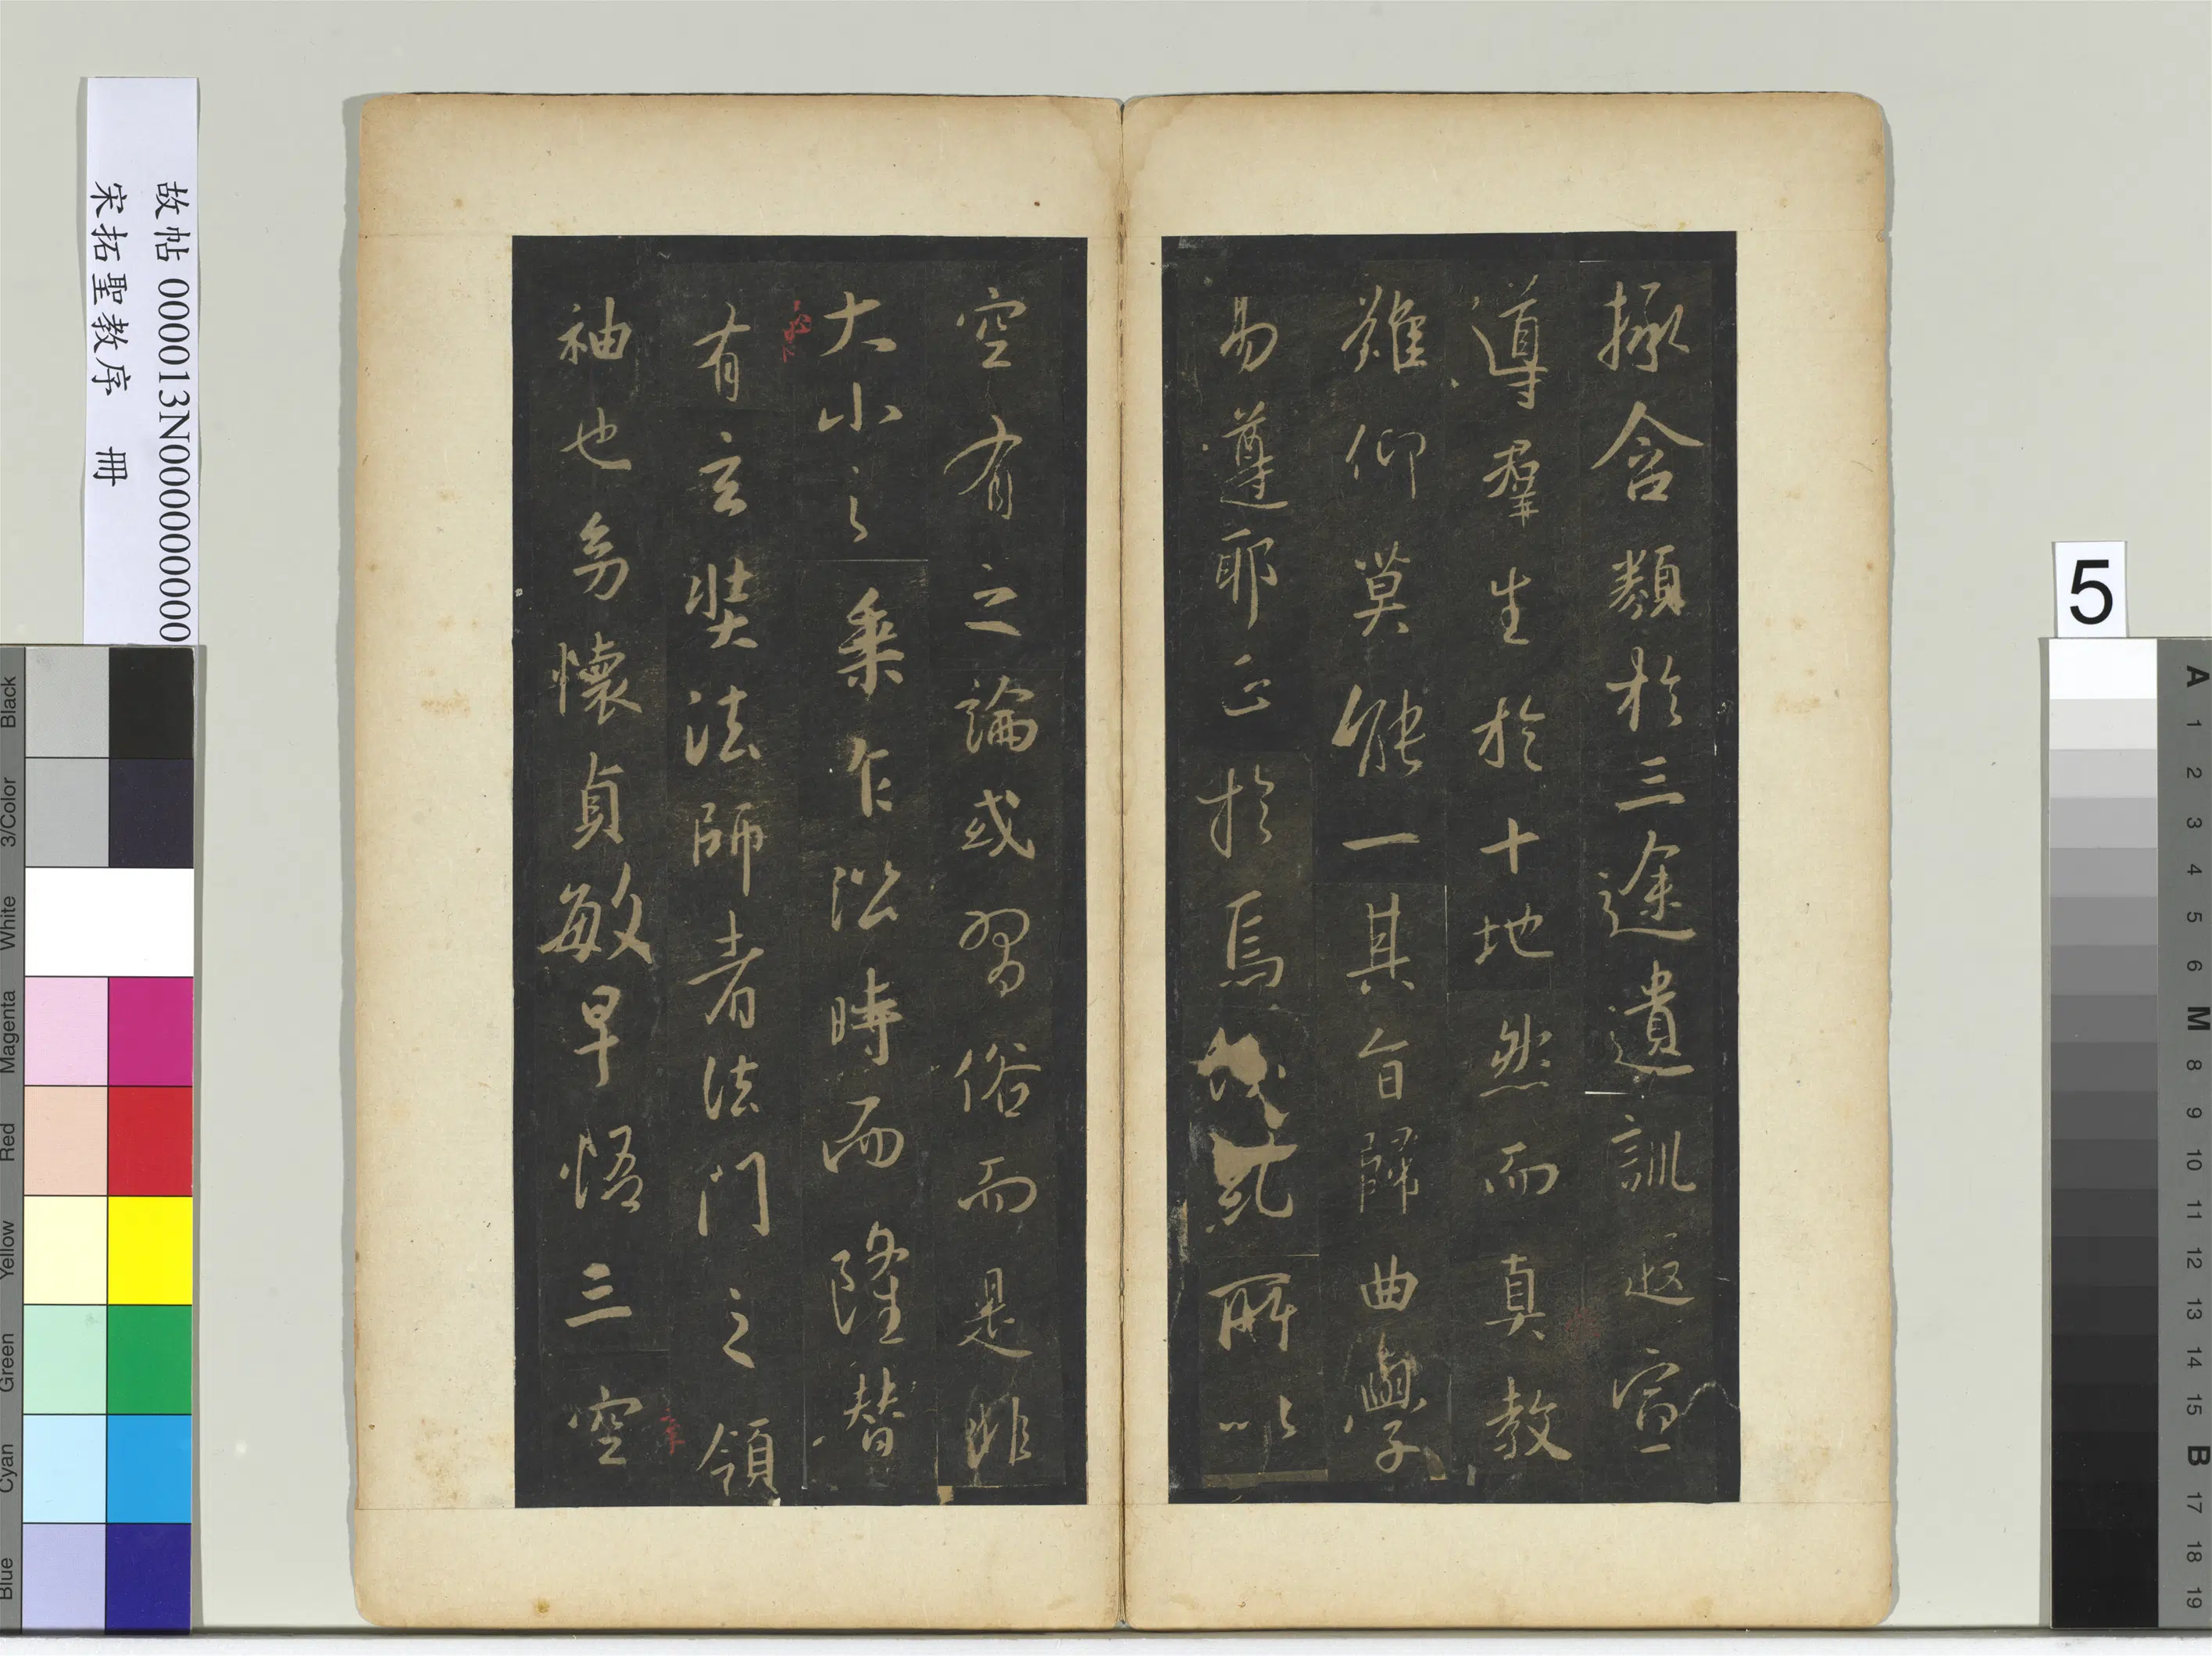 拯含類於三途遺訓遐宣
導羣生於十地然而真教
難仰莫能一其旨歸曲學
易遵耶正於焉紛糺所以
空有之論或習俗而是非
大小之乘乍沿時而隆替
有玄奘法師者法門之領
袖也幼懷貞敏早悟三空
故帖 000013N000000000
宋拓聖教序 冊
5
Black
3/Color
White
Magenta
Red
Yellow
Green
Cyan
Blue
A
1
2
3
4
5
6
M
8
9
10
11
12
13
14
15
B
17
18
19